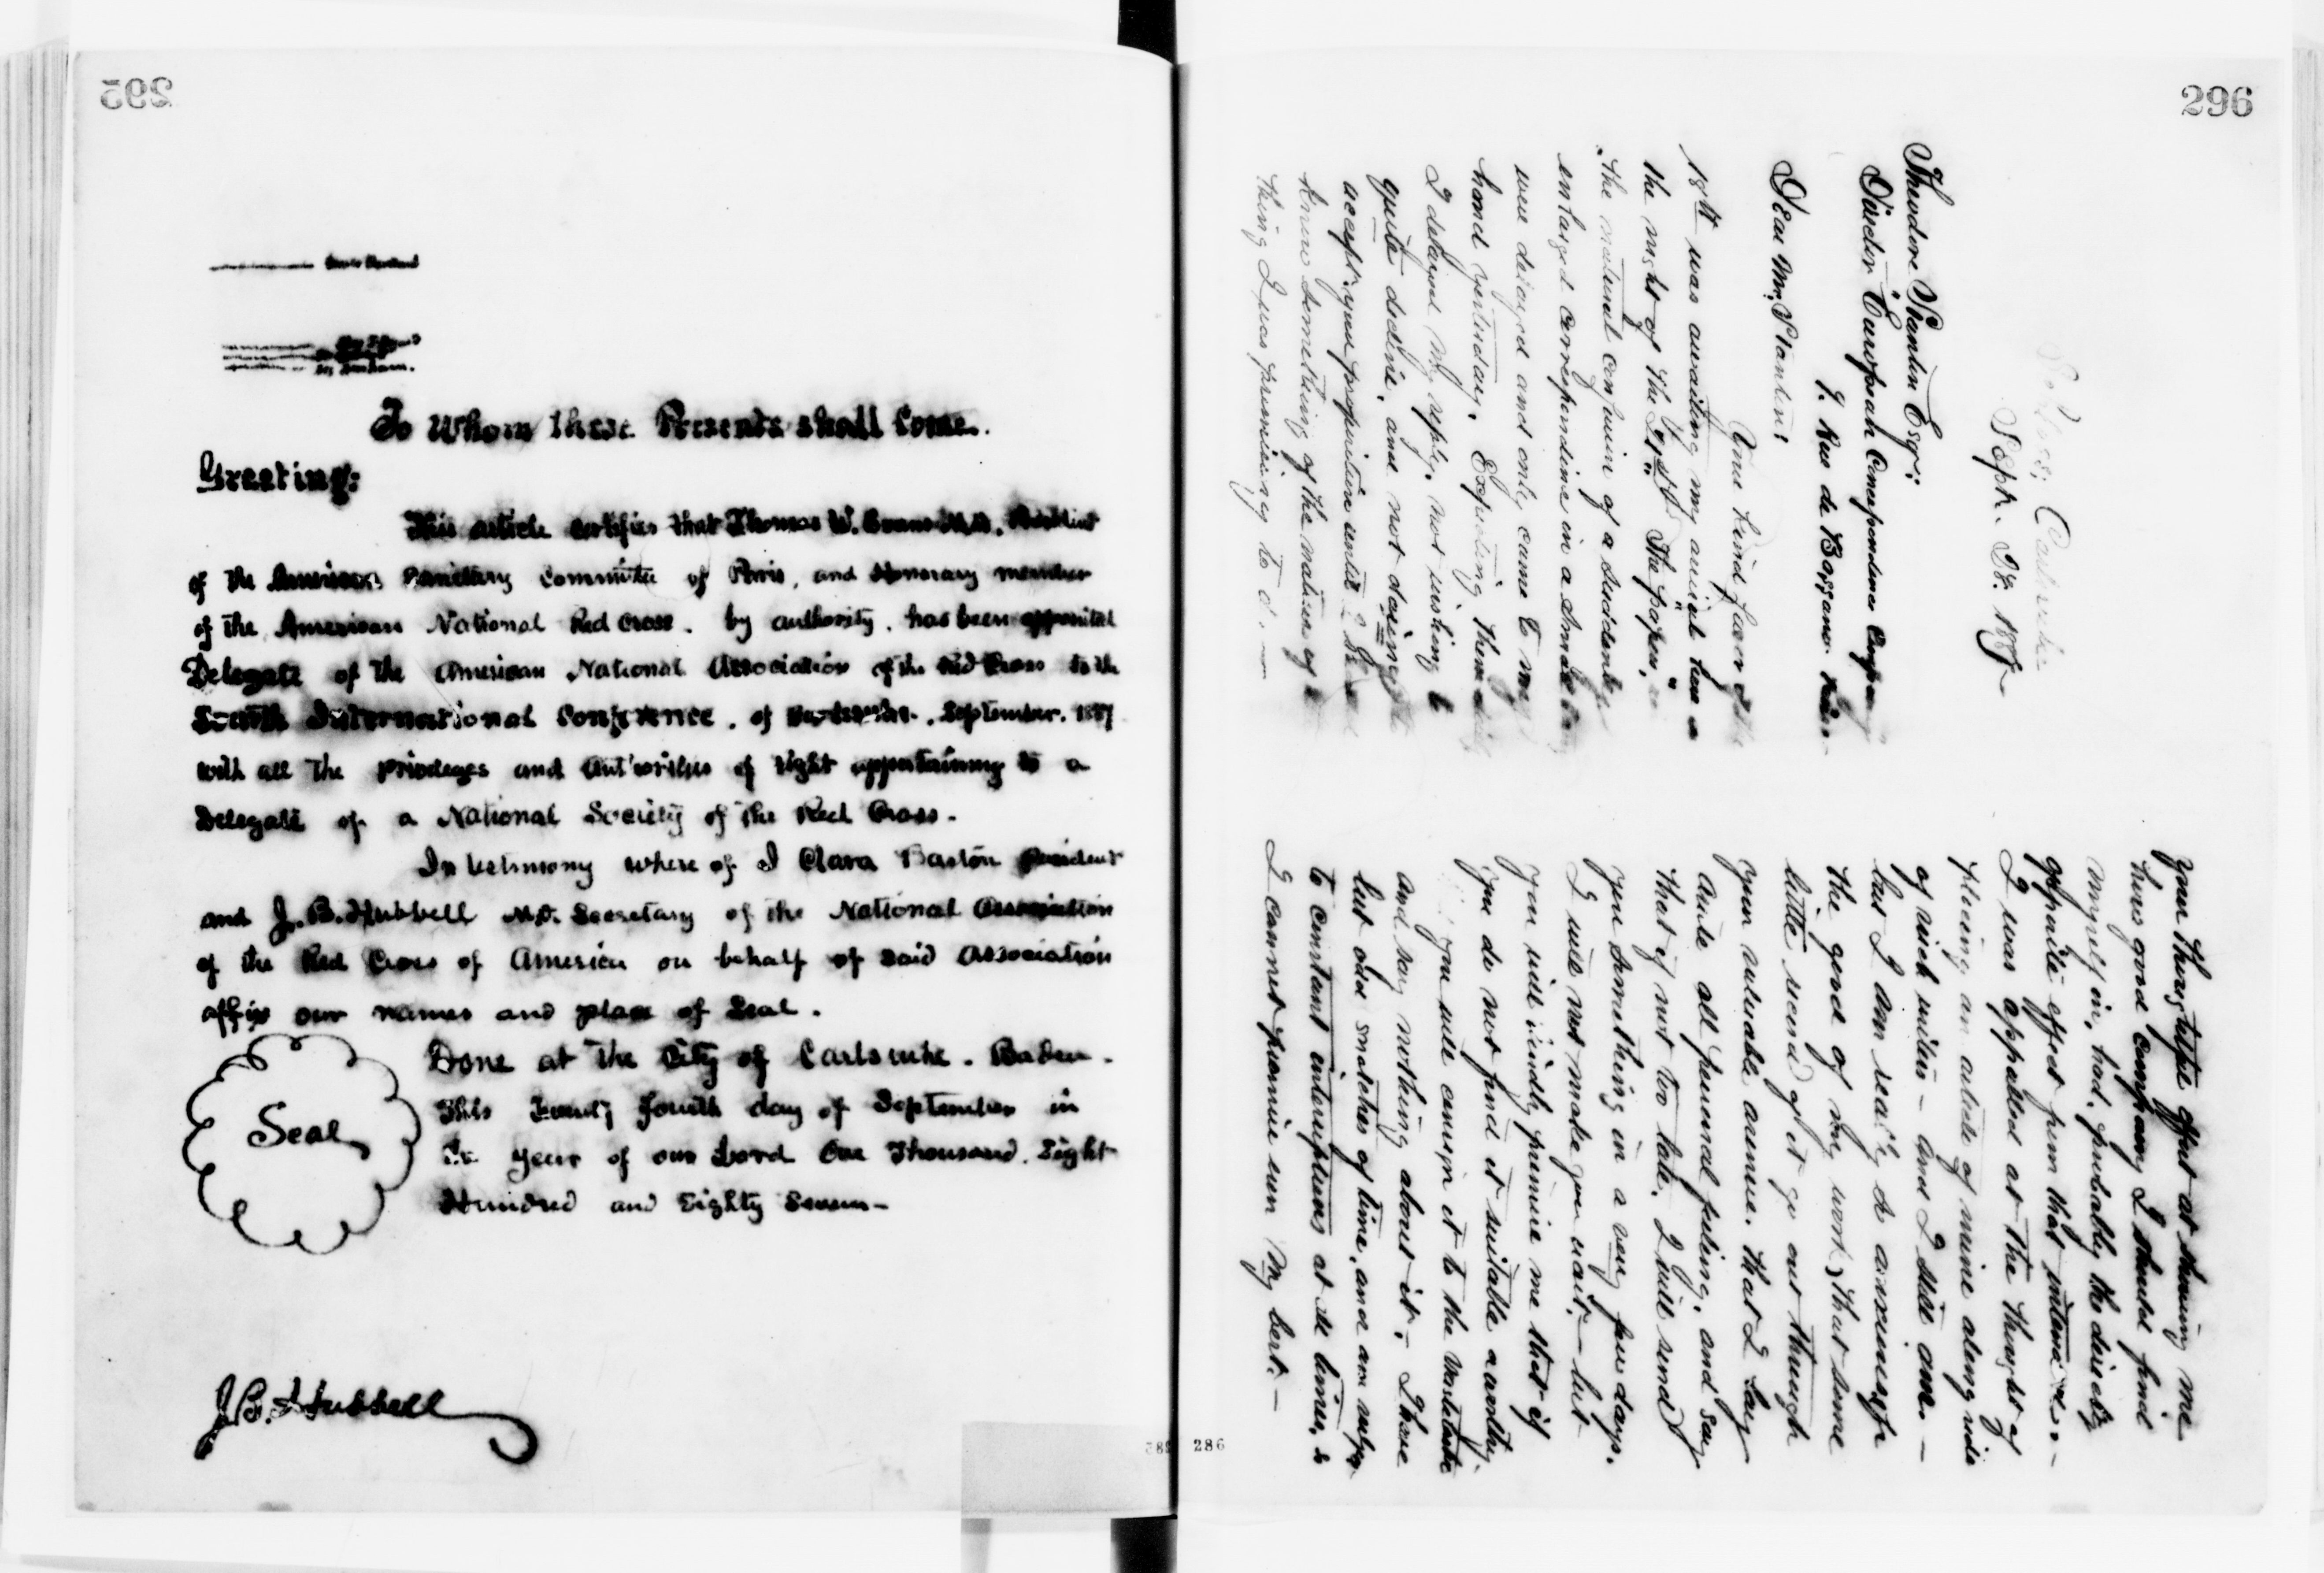 295
To Whom these Presents shall Come.
Greeting:
This article certifies that Thomas W. Evans M.D. President
of the American Sanitary Committee of Paris, and Honorary member
of the American National Red Cross. by authority. has been appointed
Delegate of the American National Association of the Red Cross to the
Fourth International Conference. of Carlsruhe. September. 1887
with all the privileges and authorities of right appertaining to a
Delegate of a National Society of the Red Cross.
In testimony where of I Clara Barton President
and J. B. Hubbell M.D. Secretary of the National Association
of the Red Cross of America on behalf of said Association
affix our names and place of Seal.
Seal
Done at the City of Carlsruhe. Baden.
This Twenty fourth day of September in
the year of our Lord One Thousand. Eight
Hundred and Eighty Seven-
J. B. Hubbell
286
296
Carlsruhe
Sept. 28. 1887
Theodore Stanton Esq:
Director European Correspondence Company
9. Rue de Bassano. Paris-
Dear Mr. Stanton:
Your kind favor of the
18th was awaiting my arrival here on
the night of the 21st. The papers,
the natural confusion of a suddenly
enlarged correspondence in a small
were delayed and only came to my
hand yesterday. Expecting them daily
I delayed my reply. not wishing to
quite decline, and not daring to
accept your proposition until I
knew something of the nature of
thing I was promising to do.—
your thoughtful effort at showing me
how good company I should find
myself in, had, probably the directly
opposite effect from that intended.-
I was appalled at the thought of
placing an article of mine along side
of such writers- and I still am.-
but I am ready to assume for
the good of my work, that some
little need of it go out through
your valuable avenue. that I lay
aside all personal feeling, and say
that if not too late. I will send
you something in a very few days.
I will not make you wait,- but
you will kindly promise me that if
you do not find it suitable a worthy
you will consign it to the wastebasket
and say nothing about it.- I have
but odd snatches of time, and am subject
to constant interruptions at all times, so
I cannot promise even my best.-